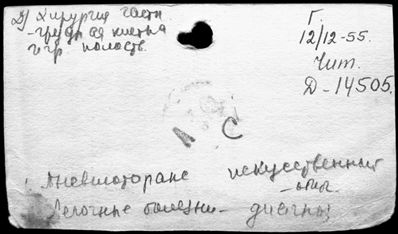 2) Хирургия частн.
- грудная клетка
и гр. полость.
Г.
12/12-55.
Чит.
Д-14505.
А С
Пневмоторакс искусственный
Легочные болезни -